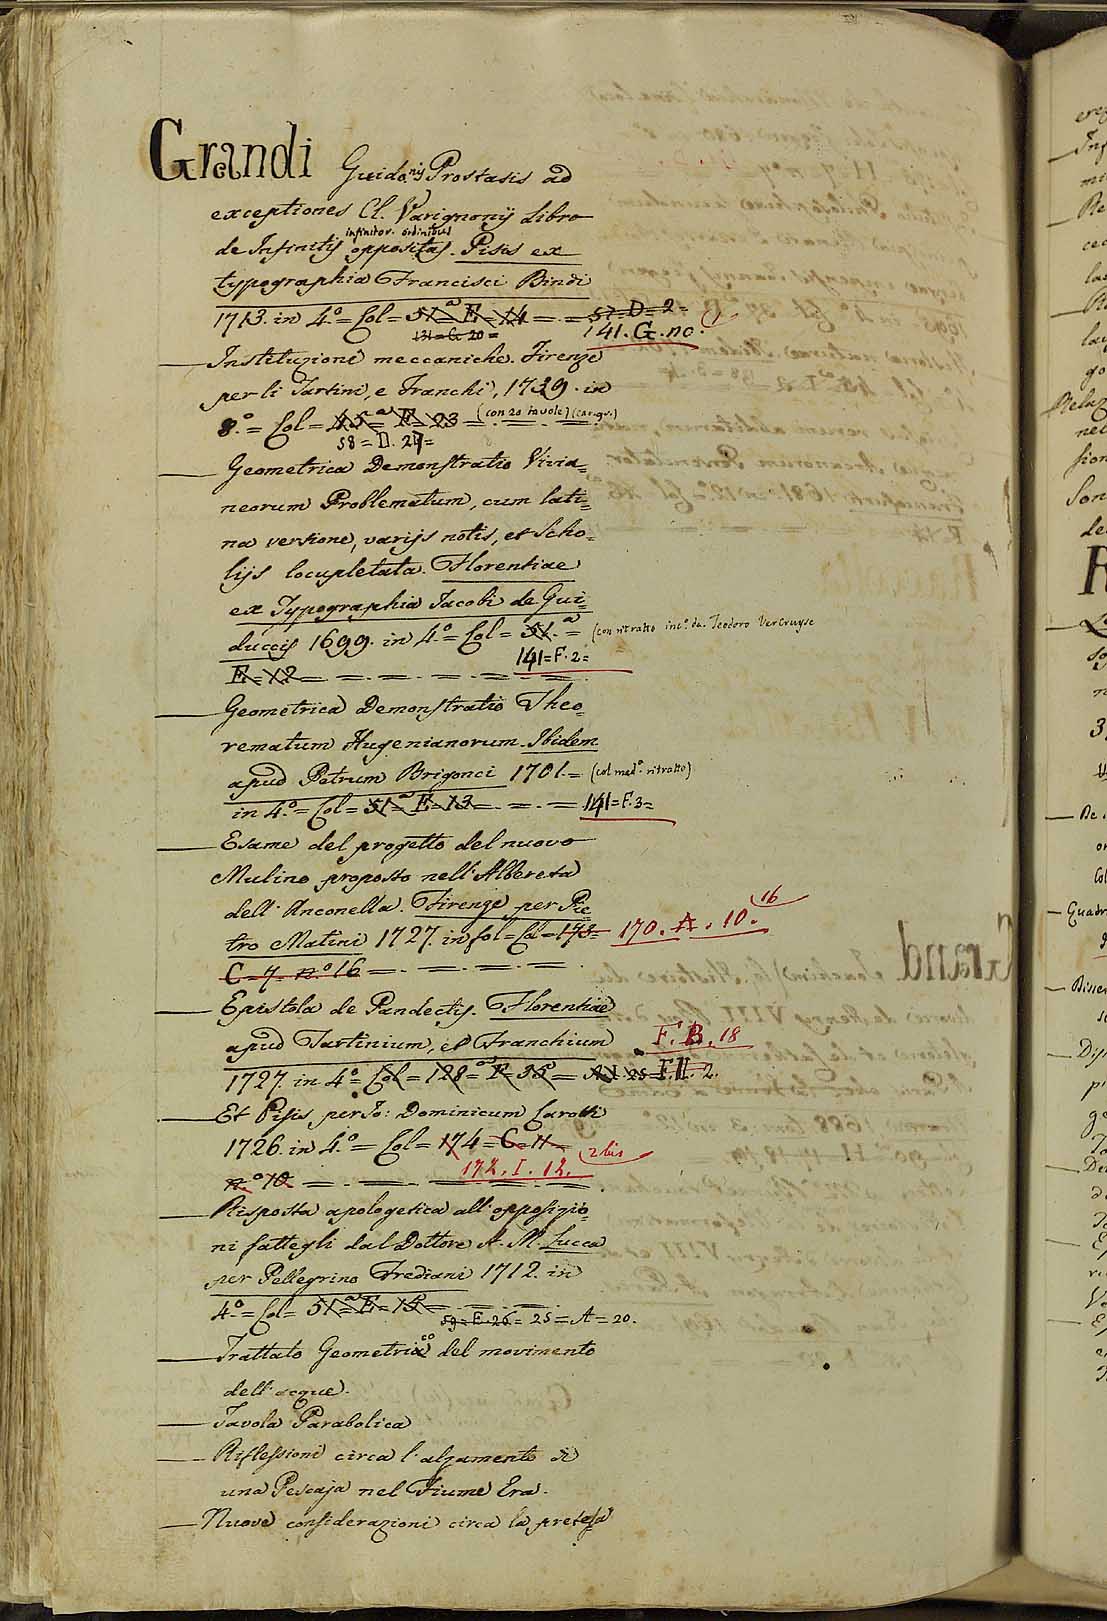 Grandi Guido.nij Prostasis ad
exceptiones Cl. Varignonij Libro
infinitor. ordinibus
de Infinitis oppositas. Pisis ex
typographia Francisci Bindi
1713. in 4.° = Col = 51.ª = E = 14 = 57 = D = 2 =
131 = G. 20 = 141. G. no.
— Instituzioni meccaniche. Firenze
per li Tartini, e Franchi, 1739. in
8.° = Col = 45.ª = E = 23 = (con 20 tavole) (car. gr.)
58 = D. 24 =
— Geometrica Demonstratio Vivia=
neorum Problematum, cum lati=
na versione, varijs notis, et Scho=
lijs locupletata. Florentiae
ex Typographia Iacobi de Gui=
duccis 1699. in 4.° = Col = 51.ª = (con ritratto inc.° da. Teodoro Vercruyse
141 = F. 2 =
E = 12 =
— Geometrica Demonstratio Theo=
rematum Hugenianorum. Ibidem
apud Petrum Brigonci 1701. = (col med.° ritratto)
in 4.° = Col = 51.ª = E = 13 = 141 = F. 3 =
— Esame del progetto del nuovo
Mulino proposto nell'Albereta
dell'Anconella. Firenze per Pie
tro Matini 1727. in fol = Col = 173 = 170. A. 10. 16
C = 7. n.° 16
— Epistola de Pandectis. Florentiae
apud Tartinium, et Franchium F. B. 18
1727. in 4.° = Col = 128 = F. II. 2.
— Et Pisis per Jo: Dominicum Carotti
1726. in 4.° = Col = 174 = C = 11 = 2 bis
172. I. 12.
n.° 10
— Risposta apologetica all'opposizio=
ni fattegli dal Dottore A. M. Lucca
per Pellegrino Frediani 1712. in
4.° = Col = 51.ª = E = 15 =
59 = E. 26 = 25 = A = 20.
— Trattato Geometrico del movimento
dell'acque.
— Tavola Parabolica
— Riflessioni circa l'alzamento di
una Pescaja nel Fiume Era.
— Nuove considerazioni circa la pretesa